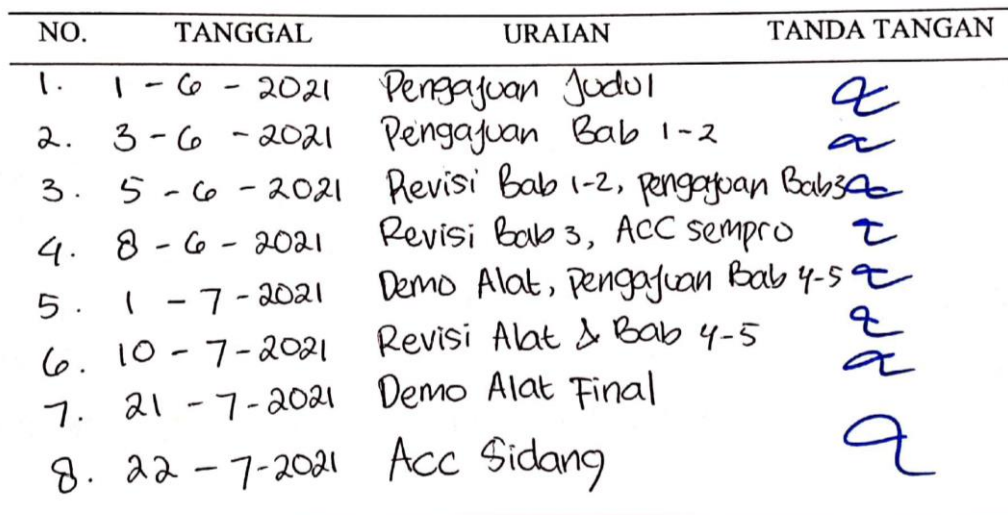 NO. TANGGAL URAIAN TANDA TANGAN
1. 1 - 6 - 2021 Pengajuan Judul
2. 3 - 6 - 2021 Pengajuan Bab 1-2
3. 5 - 6 - 2021 Revisi Bab 1-2, pengajuan Bab3
4. 8 - 6 - 2021 Revisi Bab 3, ACC sempro
5. 1 - 7 - 2021 Demo Alat, pengajuan Bab 4-5
6. 10 - 7 - 2021 Revisi Alat & Bab 4-5
7. 21 - 7 - 2021 Demo Alat Final
8. 22 - 7 - 2021 Acc Sidang